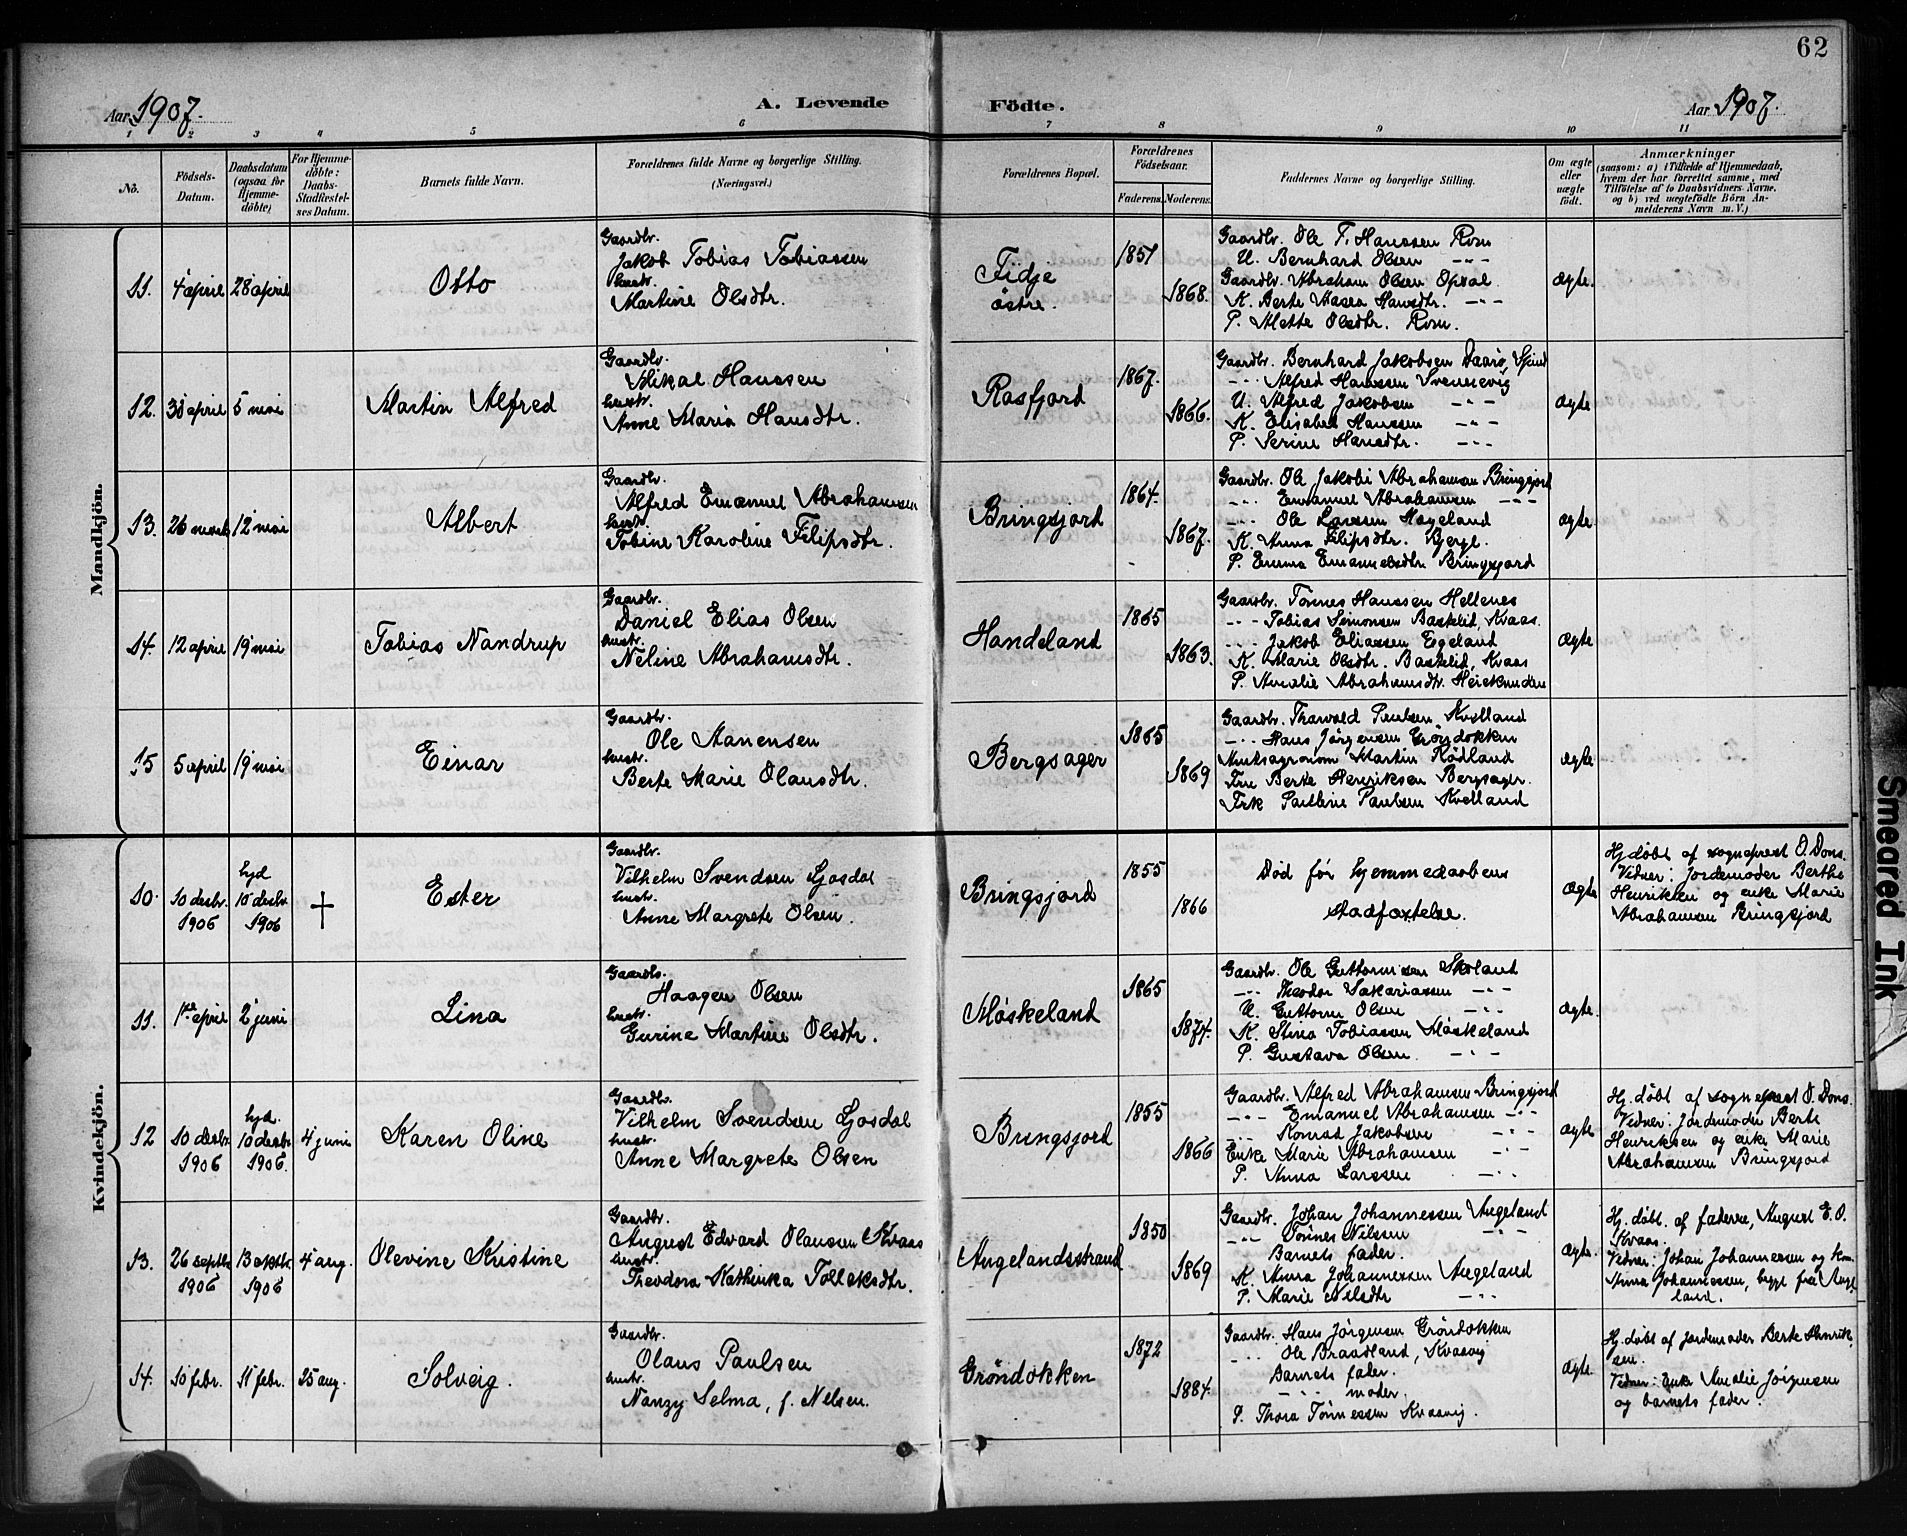 62
Aar 1907.
A. Levende Födte.
Aar 1907.
1 2 3 4 5 6 7 8 9 10 11
No.
Födsels-Datum.
Daabsdatum (ogsaa for Hjemmedöbte)
For Hjemmedöbte: Daabs-Stadfæstelses Datum.
Barnets fulde Navn.
Forældrenes fulde Navne og borgerlige Stilling.
(Næringsvei.)
Forældrenes Bopæl.
Forældrenes Födselsaar.
Faderens. Moderens.
Faddernes Navne og borgerlige Stilling.
Om ægte eller uægte födt.
Anmærkninger
(saasom: a) i Tilfælde af Hjemmedaab,
hvem der har forrettet samme, med
Tilföielse af to Daabsvidners Navne,
og b) ved uægtefödte Börn An-
melderens Navn m. V.)
Mandkjön.
11. 4 april 28 april
Otto
Gaardbr.
Jakob Tobias Tobiassen
hustr.
Martine Olsdtr.
Fidje
östre.
1857
1868.
Gaardbr. Ole T. Hanssen Rom
U. Bernhard Olsen -"-
Gaardbr. Abraham Olsen Opsal
K. Berte Hansdtr. -"-
P. Mette Olsdtr. Rom.
Ægte.
12. 30 april 5 mai
Martin Alfred
Gaardbr.
Mikal Hanssen
hustr.
Anne Maria Hansdtr.
Rosfjord
1867.
1866.
Gaardbr. Bernhard Jakobsen
-"- Alfred Hanssen Svennevig
U. Alfred Jakobsen -"-
K. Elisabet Hanssen -"-
P. Serine Hansdtr. -"-
Ægte
13. 26 12 mai
Albert
Gaardbr.
Alfred Emanuel Abrahamsen
hustr.
Tobine Karoline Filipsdtr.
Bringsjord
1864.
1867.
Gaardbr. Ole Jakobi Abrahamsen Bringsjord
-"- Emanuel Abrahamsen -"-
-"- Ole Larssen Hageland
K. Anna Filipsdtr. Berge.
P. Emma Emanuelsdtr Bringsjord
Ægte
14. 12 april 19 mai
Tobias Nandrup
Gaardbr.
Daniel Elias Olsen
hustr.
Neline Abrahamsdtr.
Handeland
1865
1863.
Gaardbr. Tönnes Hanssen Hellenes
-"- Tobias Simonsen Baskelid, Kvaas.
-"- Jakob Eliassen Egeland
K. Marie Olsdtr. Baskelid, Kvaas
P. Amalie Abrahamsdtr.
Ægte
15 5 april 19 mai
Einar
Gaardbr.
Ole Aanensen
hustr.
Berte Marie Olausdtr.
Bergsager
1865
1869
Gaardbr. Thorvald Paulsen Kvelland
-"- Hans Jörgensen Gröndokken
Amtsagronom Martin Rödland
Fru Berte Henriksen Bergsagr.
Frk Pauline Paulsen Kvelland
Ægte
Kvindekjön.
10. 10 desbr. 1906
hjd 10 desbr. 1906
†
Ester
Gaardbr.
Vilhelm Svendsen Ljosdal
hustr.
Anne Margrete Olsen.
Bringsjord
1855
1866
Död før hjemmedaabens
stadfæstelse.
Ægte
Hjdøbt af sogneprest O. Dons.
Vidner: Jordemoder Berthe
Henriksen og enke Marie
Abrahamsen Bringsjord
11. 1ste april 2 juni
Lina
Gaardbr.
Haagen Olsen
hustr.
Gurine Martine Olsdtr.
Møskeland
1865
1874.
Gaardbr. Ole Guttormsen Skoland
-"- Theodor Sakariassen -"-
U. Guttorm Olsen -"-
K. Stina Tobiassen Møskeland
P. Gustava Olsen. -"-
Ægte.
12 10 desbr 1906
hjd. 10 desbr. 1906.
4 juni
Karen Oline
Gaardbr.
Vilhelm Svendsen Ljosdal
hustr.
Anne Margrete Olsen
Bringsjord
1855
1866
Gaardbr. Alfred Abrahamsen Bringsjord
-"- Emanuel Abrahamsen -"-
-"- Konrad Jakobsen -"-
Enke Marie Abrahamsen -"-
P. Anna Larssen -"-
Ægte
Hj. døbt af sogneprest O. Dons.
Vidner: Jordemoder Berte
Henriksen og enke Marie
Abrahamsen Bringsjord
13. 26 septbr 1906 13 oktbr 1906
4 aug.
Olevine Kristine
Gaardbr.
August Edvard Olaussen Kvaas
hustr.
Theodora Kathinka Tolleksdtr.
Augelandsstrand
1850
1869
Gaardbr. Johan Johannessen Augeland
-"- Tönnes Nilsen -"-
Barnets fader.
K. Anna Johannessen Augeland
P. Marie Nilsdtr -"-
Ægte.
Hj. døbt. af faderen, August E. O.
Kvaas.
Vidner: Johan Johannessen og kon.
Anna Johannessen, begge fra Auge-
land.
14. 10 febr. 11 febr. 25 aug.
Solveig.
Gaardbr.
Olaus Paulsen
hustr.
Nanzy Selma, f. Nilsen.
Gröndokken
1872
1884.
Gaardbr. Hans Jörgensen Gröndokken
-"- Ole Braadland, Kvaavig
Barnets fader.
-"- moder.
P. Thora Tönnessen Kvaavig.
Ægte
Hj. døbt af jordemoder Berte Henrik-
sen.
Vidner: Enke Amalie Jörgensen
og barnets fader.
Smeared Ink